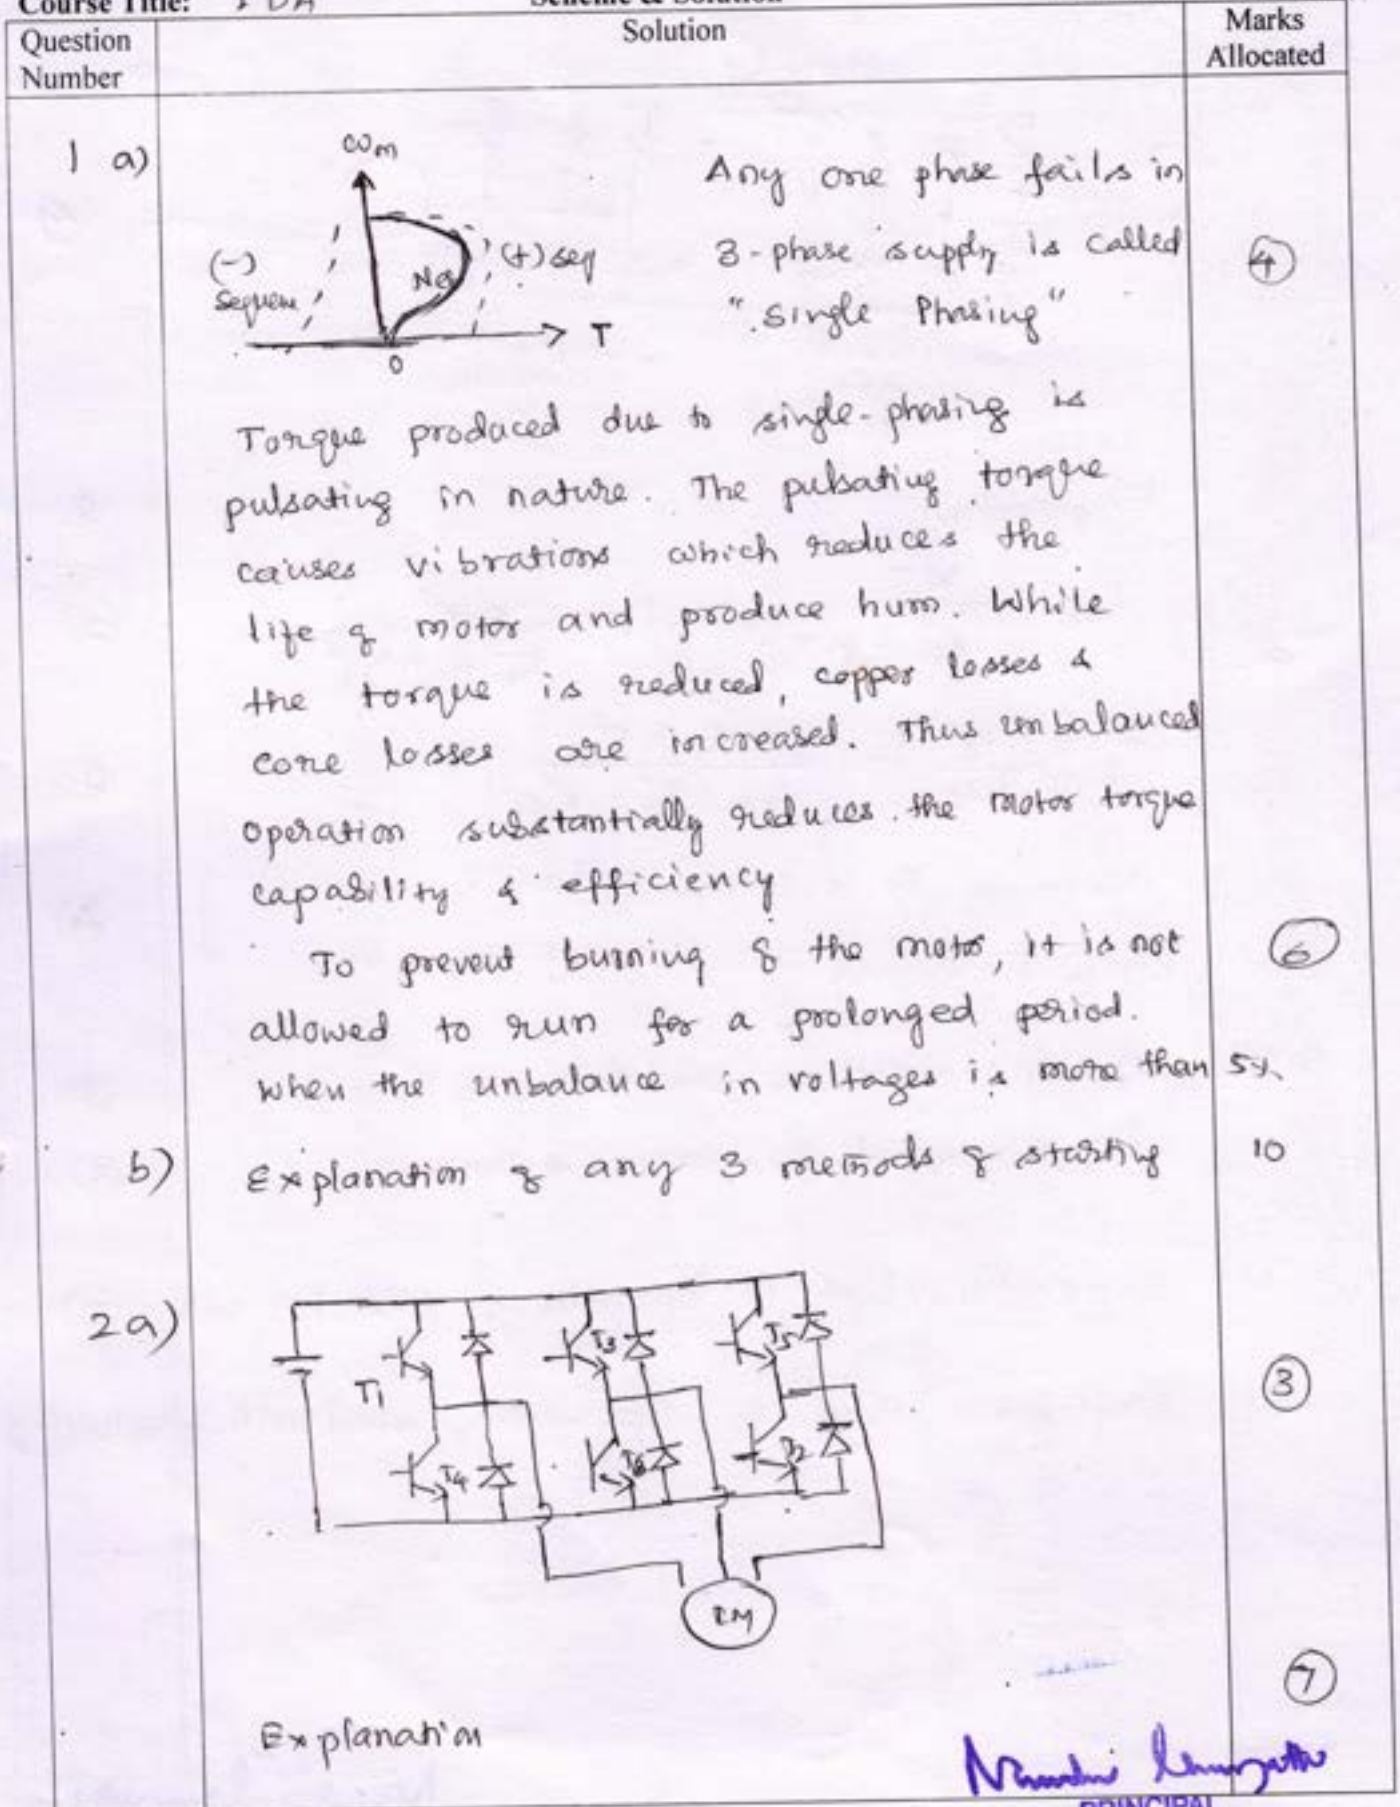 Course Title:
Scheme & Solution
Question Number
Solution
Marks Allocated
1 a)
ωm
(-) Sequen
Net
(+) seq
T
0
Any one phase fails in
3-phase supply is called
"Single Phasing"
4
Torque produced due to single-phasing is
pulsating in nature. The pulsating torque
causes vibrations which reduces the
life of motor and produce hum. While
the torque is reduced, copper losses &
core losses are increased. Thus unbalanced
operation substantially reduces the motor torque
capability & efficiency
To prevent burning of the motor, it is not
6
allowed to run for a prolonged period.
when the unbalance in voltages is more than 5%
b) Explanation of any 3 methods of starting
10
2a)
T1
T3
T5
T4
T6
T2
IM
3
7
Explanation
PRINCIPAL